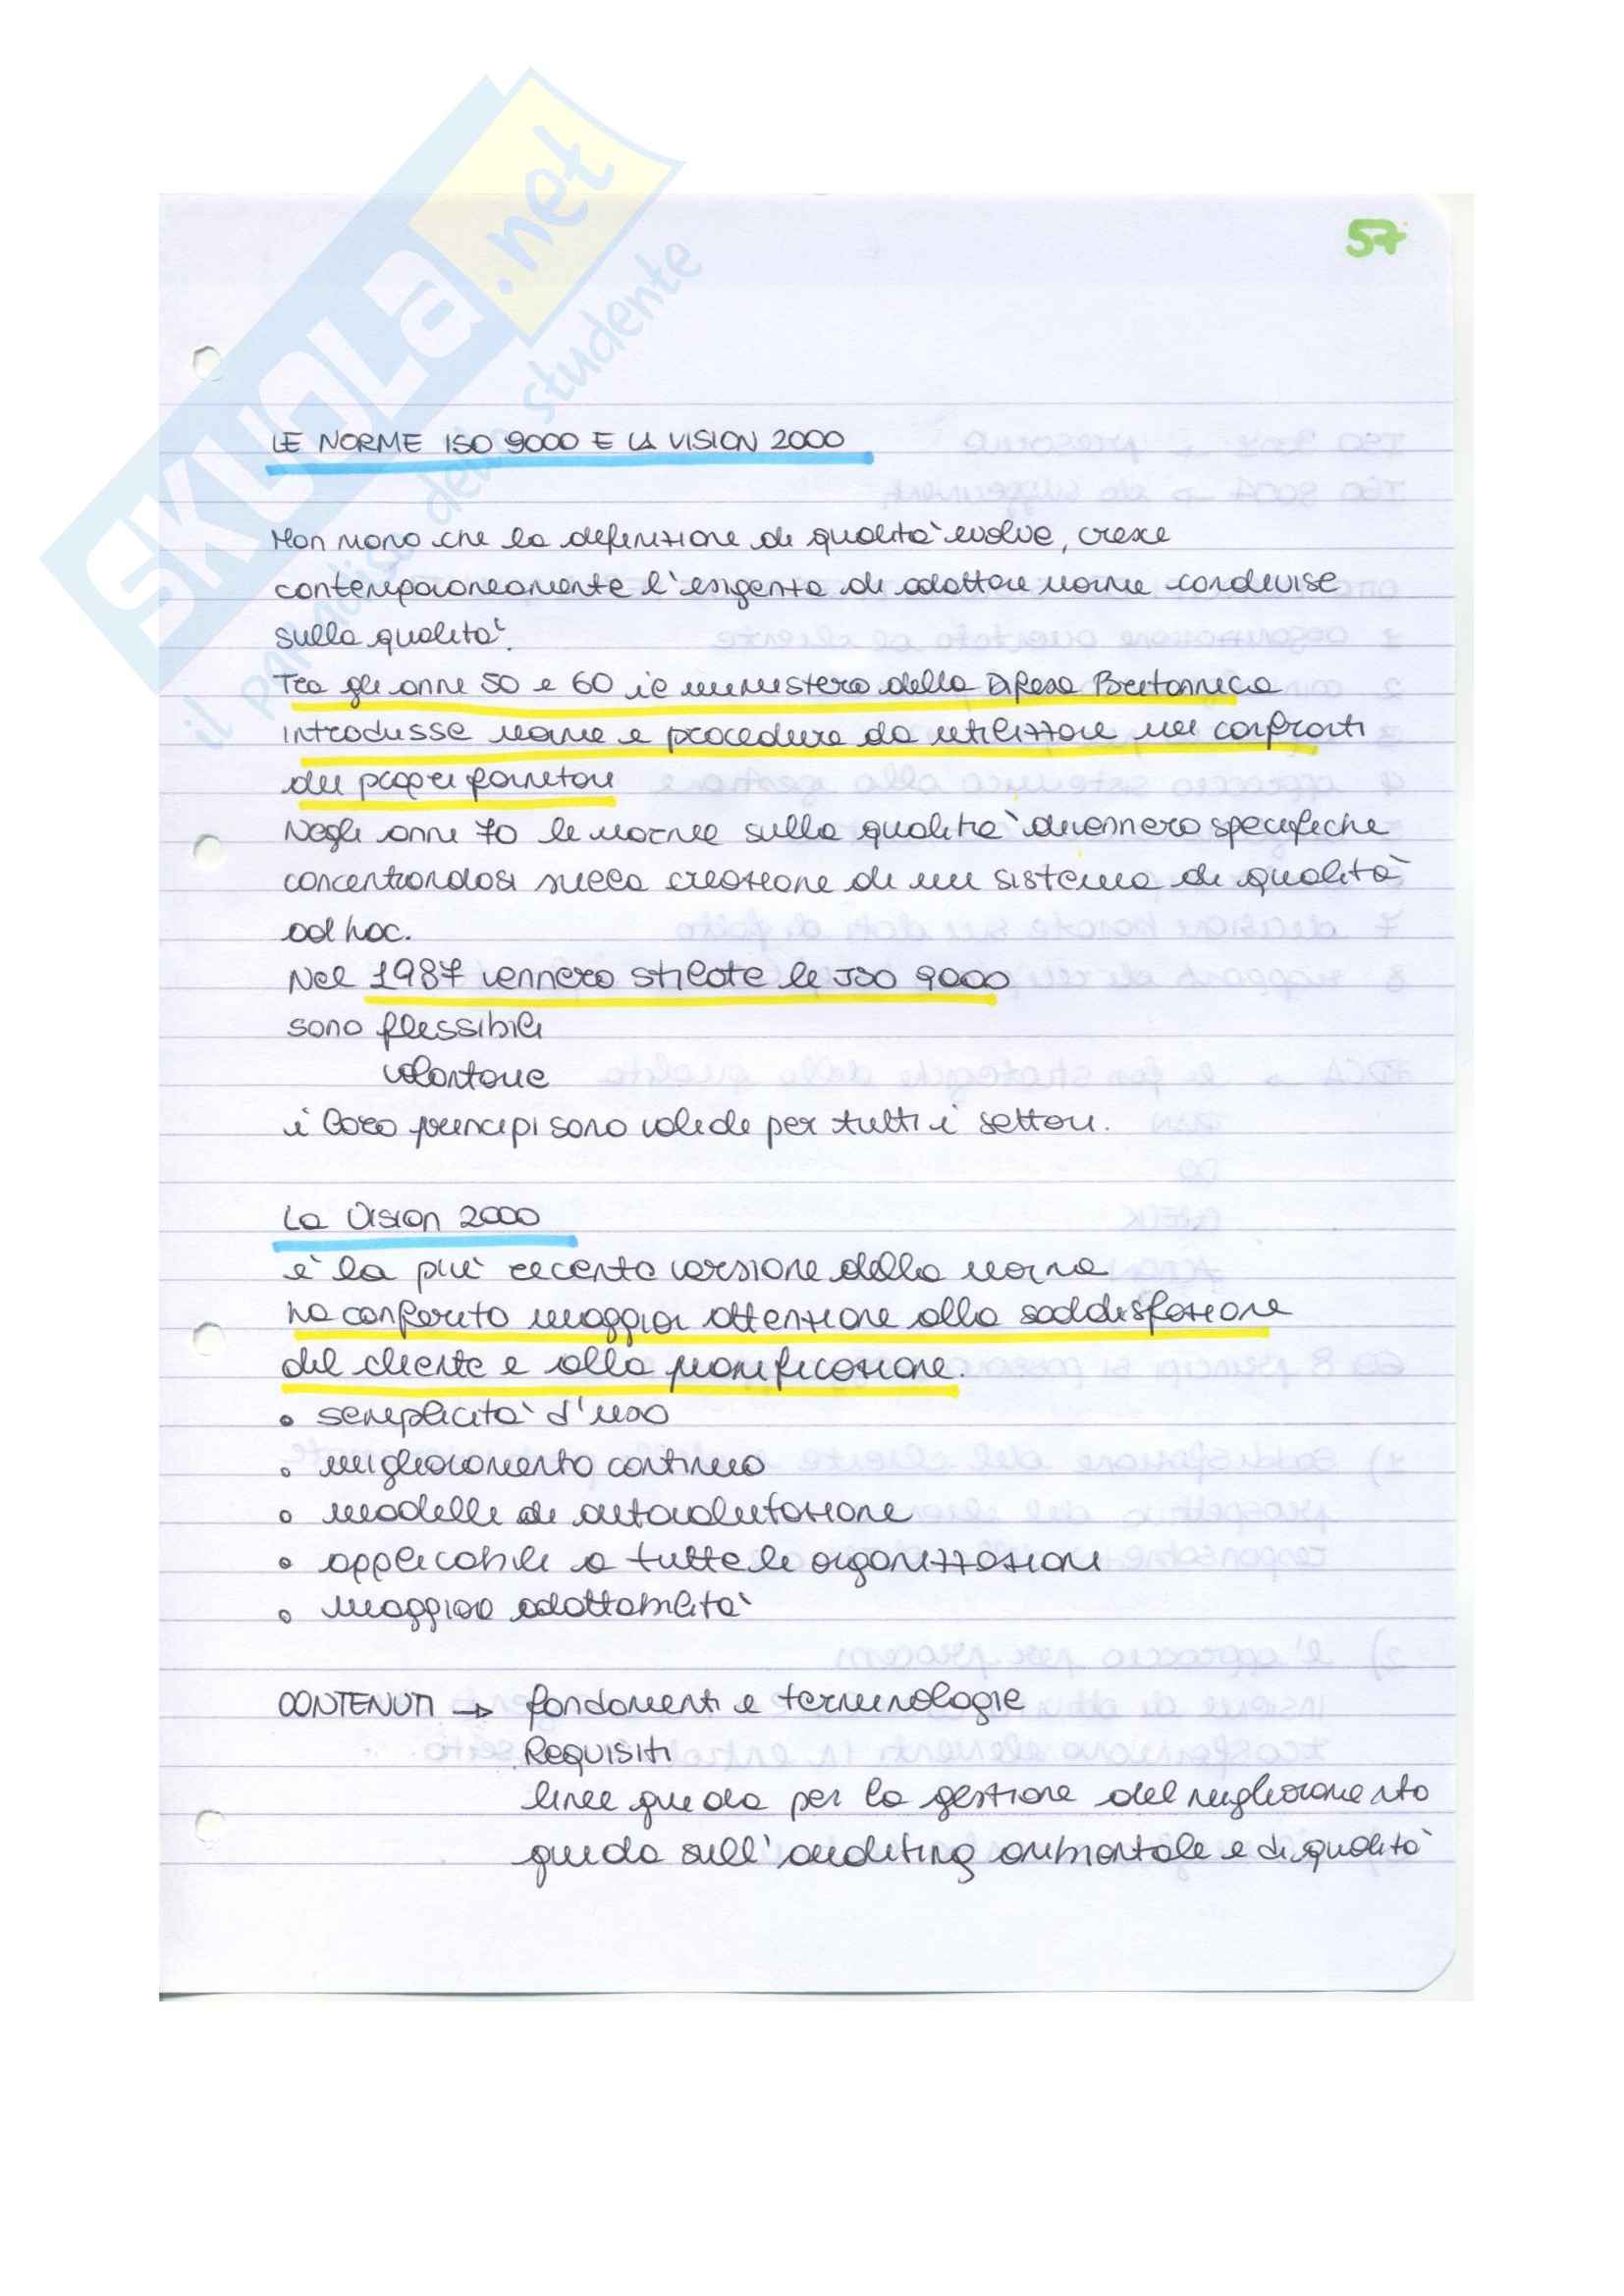 57
SKUOLA.net
il paradiso dello studente
LE NORME ISO 9000 E LA VISION 2000
Man mano che la definizione di qualità evolve, cresce
contemporaneamente l'esigenza di adottare norme condivise
sulla qualità.
Tra gli anni 50 e 60 il ministero della Difesa Britannica
introdusse norme e procedure da utilizzare nei confronti
dei propri fornitori
Negli anni 70 le norme sulla qualità divennero specifiche
concentrandosi sulla creazione di un sistema di qualità
ad hoc.
Nel 1987 vennero stilate le ISO 9000
sono flessibili
volontarie
i loro principi sono valide per tutti i settori.
La Vision 2000
è la più recente versione della norma
ha conferito maggior attenzione alla soddisfazione
del cliente e alla pianificazione.
• semplicità d'uso
• miglioramento continuo
• modelli di autovalutazione
• applicabili a tutte le organizzazioni
• maggior adattabilità
CONTENUTI → fondamenti e terminologie
Requisiti
linee guida per la gestione del miglioramento
guida sull'auditing ambientale e di qualità